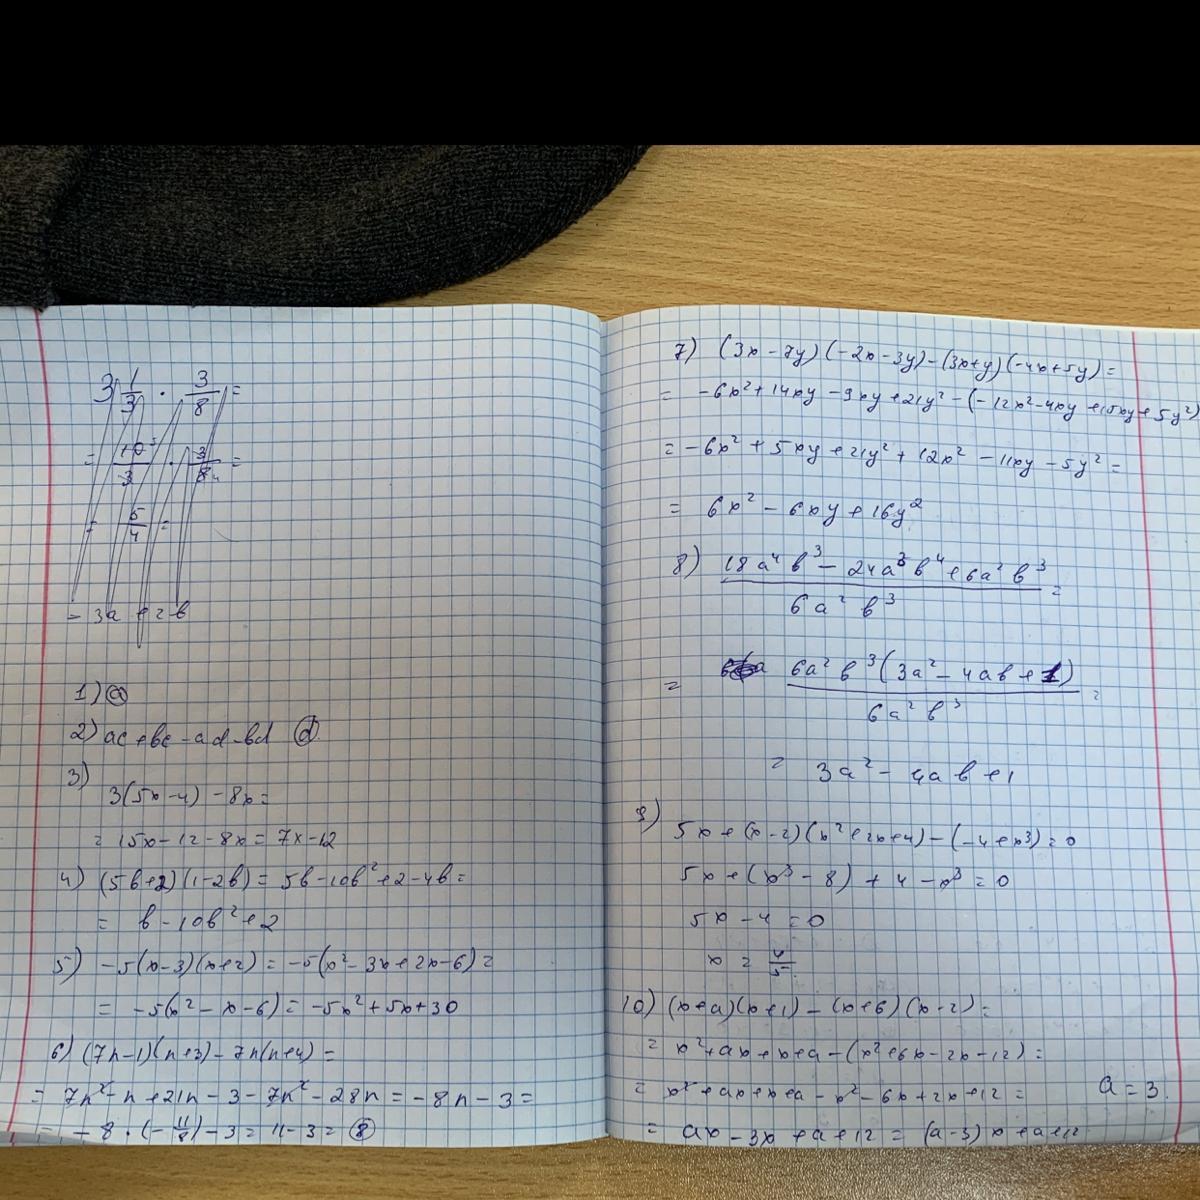 3 1/3 · 3/8 =
= 10/3 · 3/8 =
= 5/4 =
- 3a + 2b
1) a
2) ac+bc-ad-bd (d)
3)
3(5x-4) - 8x =
= 15x - 12 - 8x = 7x - 12
4) (5b+2)(1-2b) = 5b - 10b² + 2 - 4b =
= b - 10b² + 2
5) -5(x-3)(x+2) = -5(x² - 3x + 2x - 6) =
= -5(x² - x - 6) = -5x² + 5x + 30
6) (7n-1)(n+3) - 7n(n+4) =
= 7n² - n + 21n - 3 - 7n² - 28n = -8n - 3 =
= -8 · (-11/8) - 3 = 11 - 3 = (8)
7) (3x - 7y)(-2x - 3y) - (3x+y)(-4x+5y) =
= -6x² + 14xy - 9xy + 21y² - (-12x² - 4xy + 15xy + 5y²)
= -6x² + 5xy + 21y² + 12x² - 11xy - 5y² =
= 6x² - 6xy + 16y²
8) (18a⁴b³ - 24a³b⁴ + 6a²b³)/(6a²b³) =
= 6a²b³(3a² - 4ab + 1)/(6a²b³) =
= 3a² - 4ab + 1
9)
5x + (x-2)(x²+2x+4) - (-4+x³) = 0
5x + (x³ - 8) + 4 - x³ = 0
5x - 4 = 0
x = 4/5.
10) (x+a)(x+1) - (x+6)(x-2) =
= x² + ax + x + a - (x² + 6x - 2x - 12) =
= x² + ax + x + a - x² - 6x + 2x + 12 = a = 3.
= ax - 3x + a + 12 = (a-3)x + a + 12